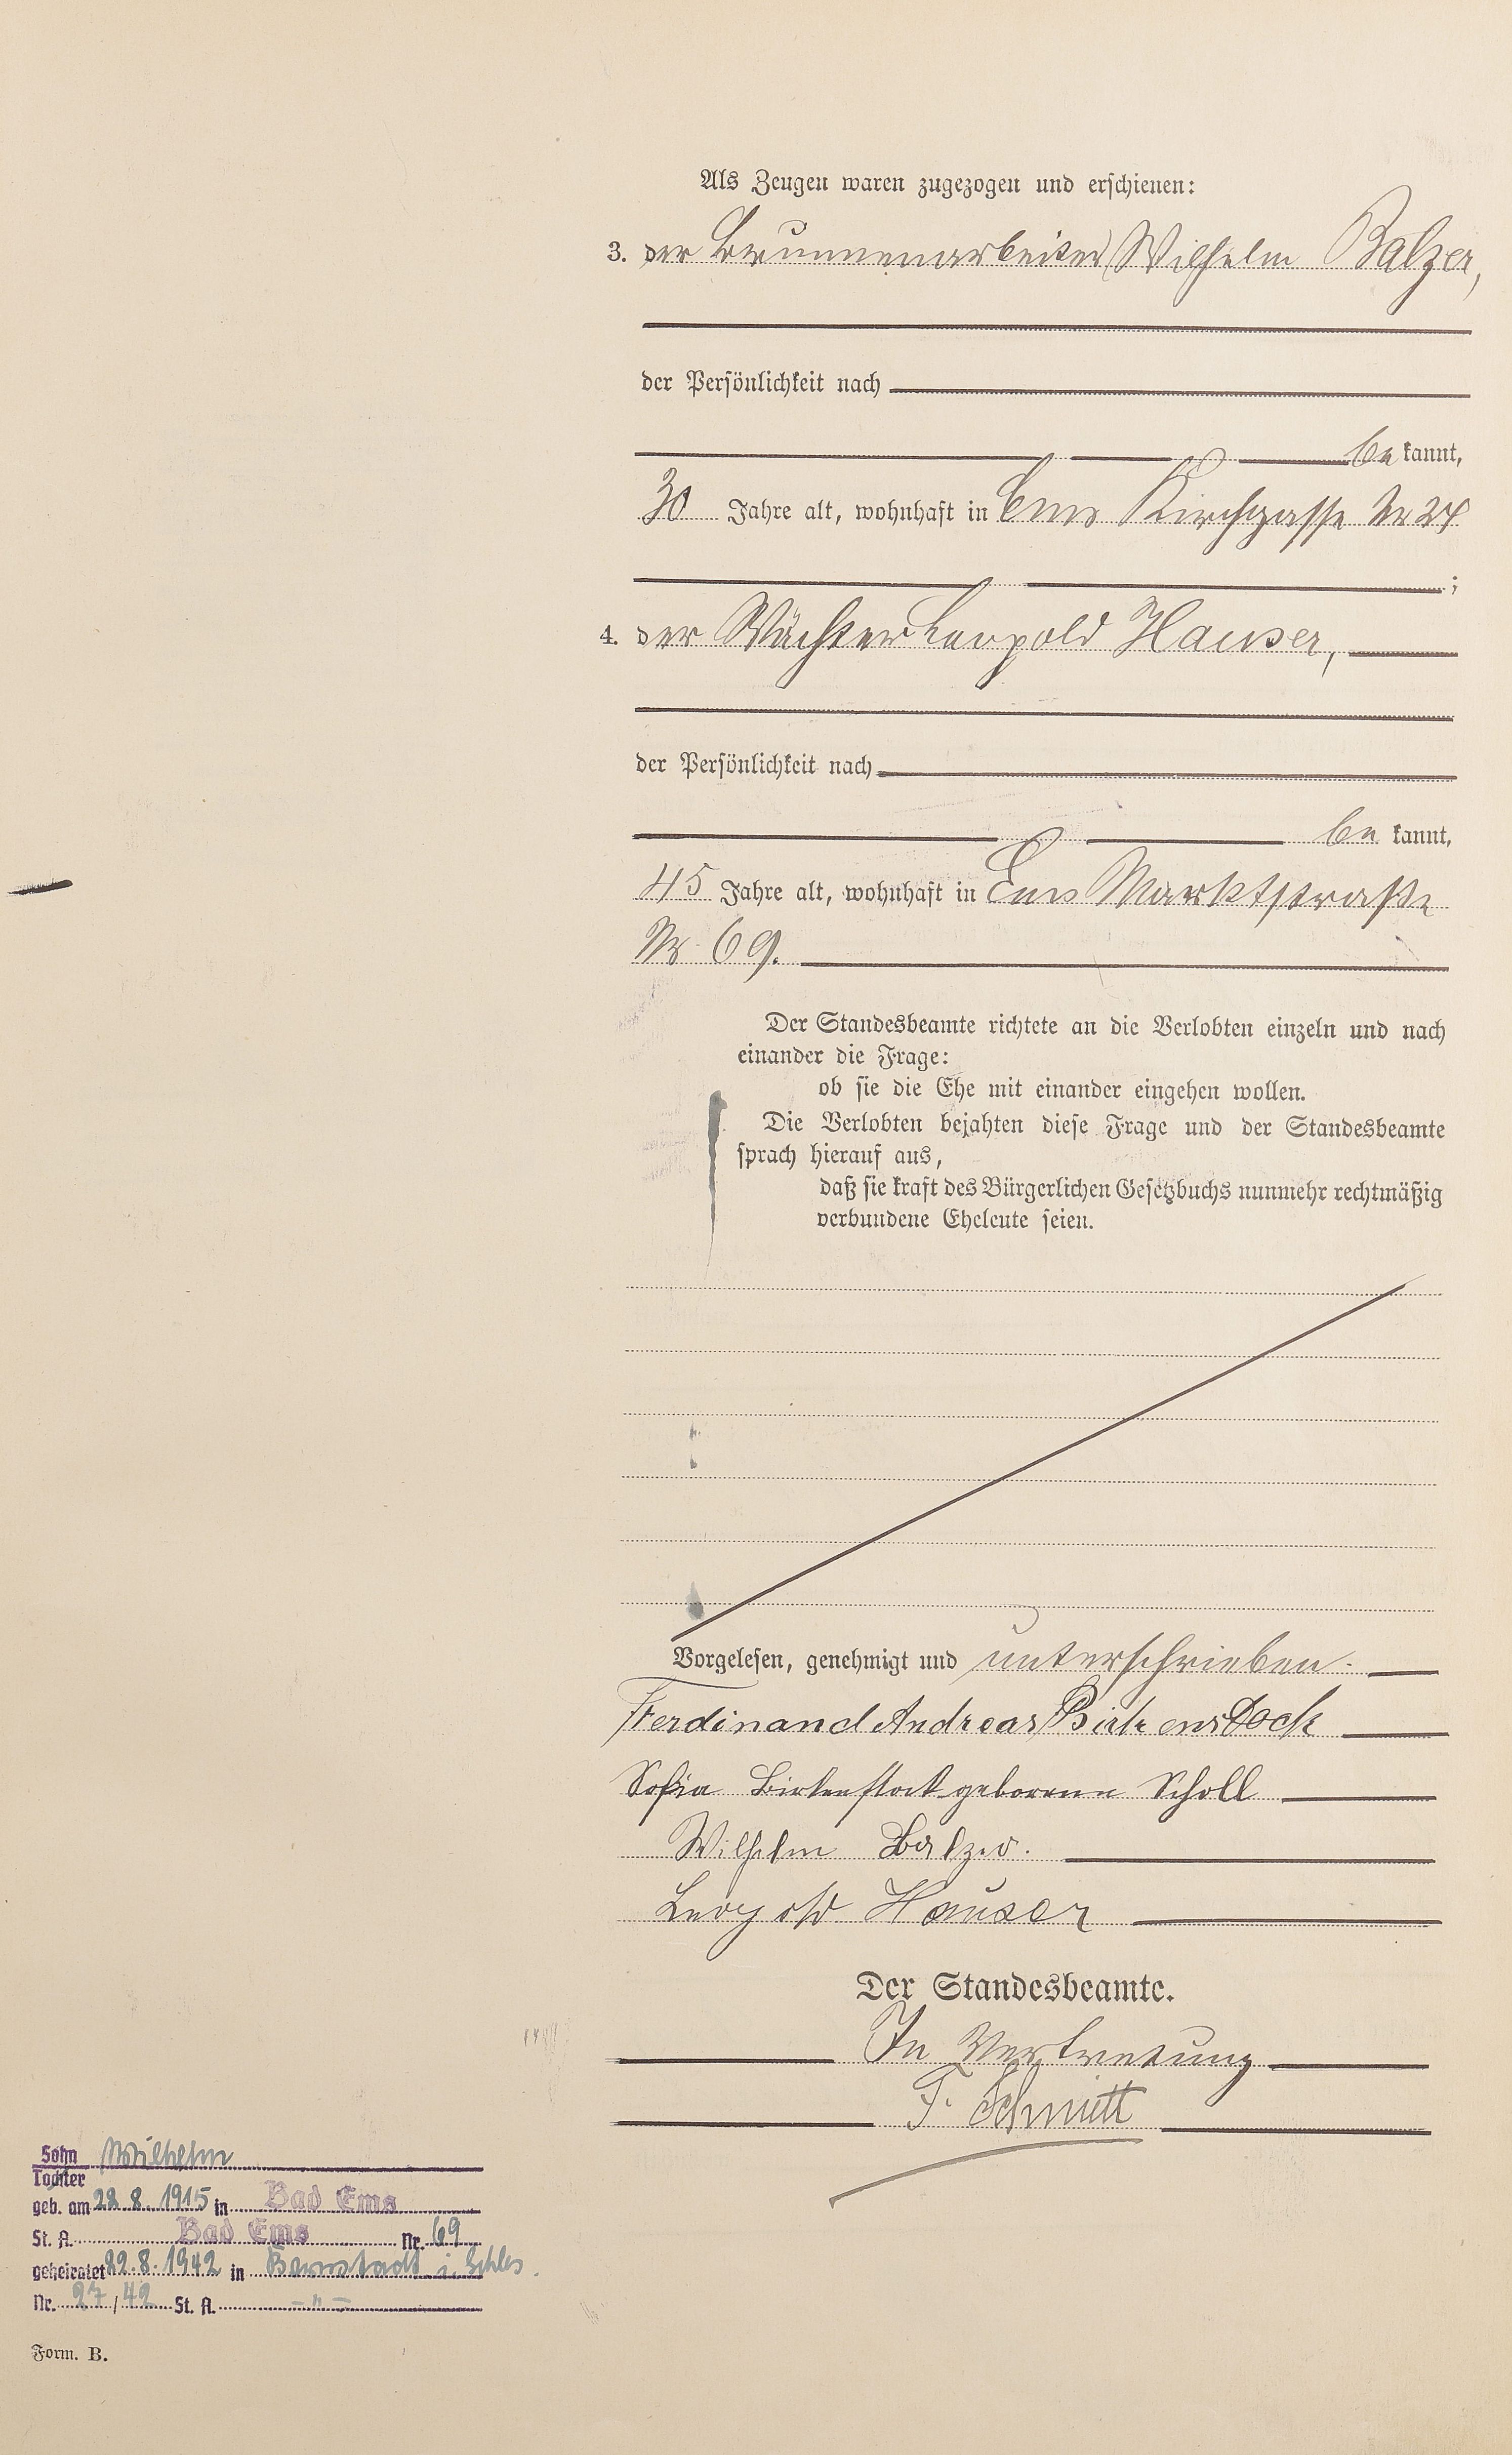 Als Zeugen waren zugezogen und erschienen:
3. der Brunnenarbeiter Wilhelm Balzer,
der Persönlichkeit nach
be kannt,
30 Jahre alt, wohnhaft in Ems Kirchgasse Nr 24
;
4. der Wächter Leopold Hauser,
der Persönlichkeit nach
be kannt,
45 Jahre alt, wohnhaft in Ems Marktstraße
Nr 69.
Der Standesbeamte richtete an die Verlobten einzeln und nach
einander die Frage:
ob sie die Ehe mit einander eingehen wollen.
Die Verlobten bejahten diese Frage und der Standesbeamte
sprach hierauf aus,
daß sie kraft des Bürgerlichen Gesetzbuchs nunmehr rechtmäßig
verbundene Eheleute seien.
Vorgelesen, genehmigt und unterschrieben.
Ferdinand Andreas Birkenstock
Sofia Birkenstock geborene Scholl
Wilhelm Balzer.
Leopold Hauser
Der Standesbeamte.
In Vertretung
F. Schmitt
Sohn Wilhelm
Tochter
geb. am 28.8.1915 in Bad Ems
St. A. Bad Ems Nr. 69
geheiratet 29.8.1942 in Bernstadt i. Schles.
Nr. 27/42 St. A. -"-
Form. B.